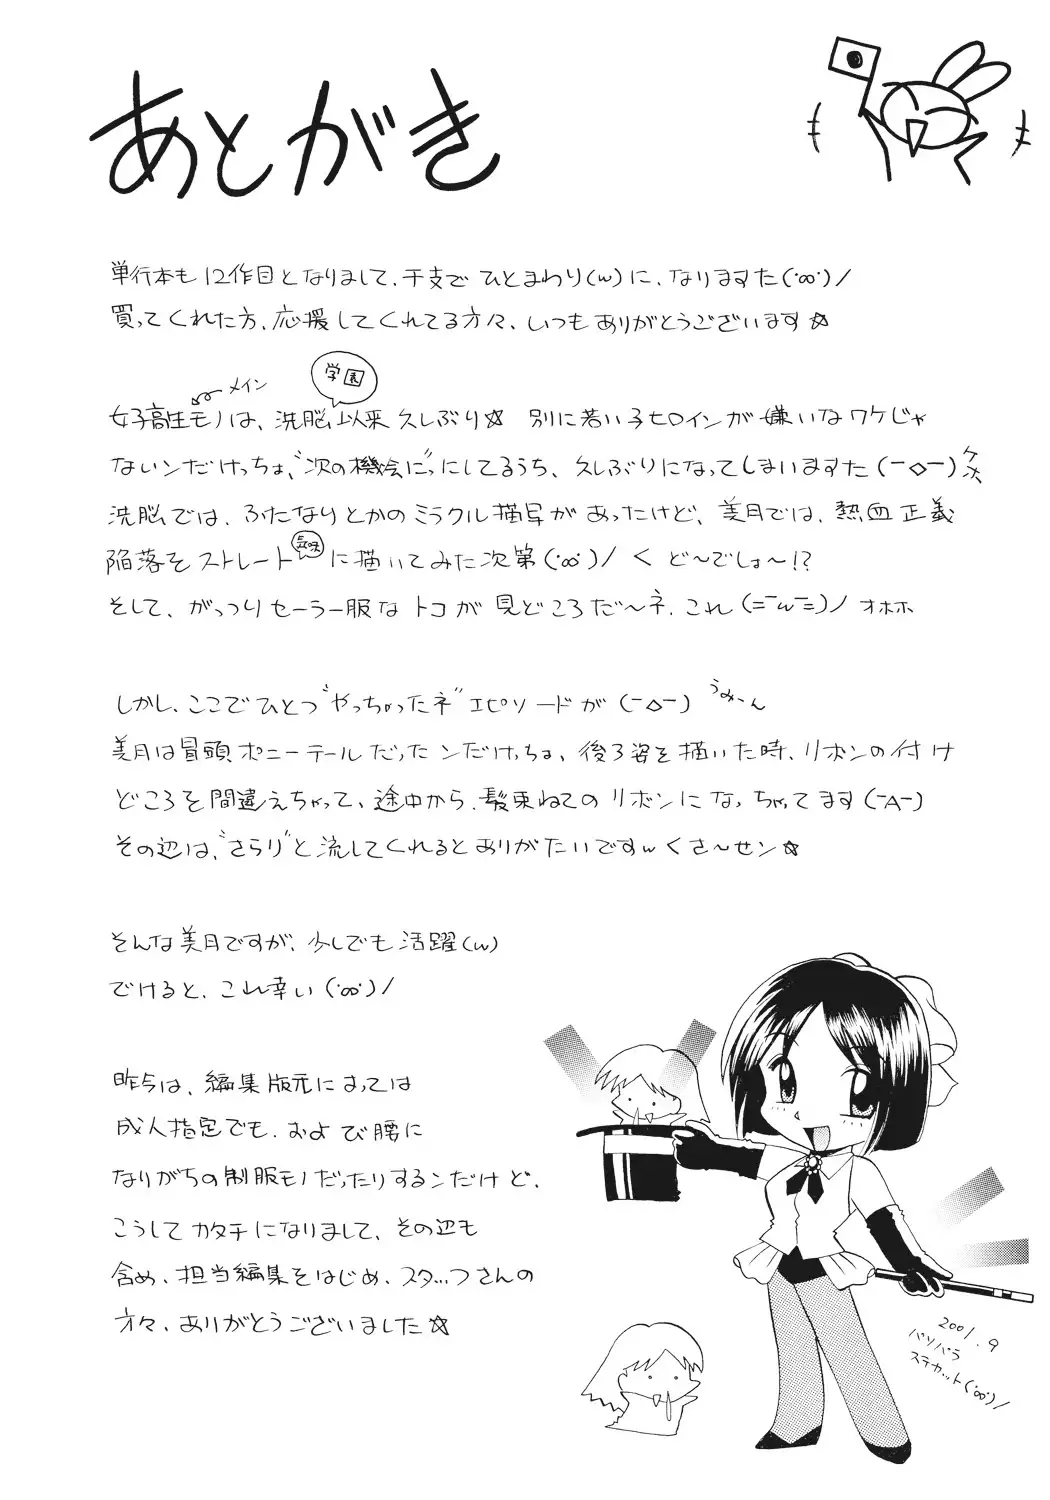 あとがき
単行本も12作目となりまして、干支でひとまわり(w)に、なりますた(･∞･)/
買ってくれた方、応援してくれてる方々、いつもありがとうございます☆
メイン
学園
女子高生モノは、洗脳以来久しぶり☆ 別に若い子ヒロインが嫌いなワケじゃ
ないンだけっちょ、"次の機会に"っにしてるうち、久しぶりになってしまいますた(ー◇ー)
洗脳では、ふたなりとかのミラクル描写があったけど、美月では、熱血正義
気味
陥落をストレートに描いてみた次第(･∞･)/ く ど〜でしょ〜!?
そして、がっつりセーラー服なトコが見どころだ〜ネ、これ(=￣w￣=)ノ オホホ
しかし、ここでひとつ"やっちゃったネ"エピソードが(ー◇ー) うみーん
美月は冒頭ポニーテールだったンだけっちょ、後ろ姿を描いた時、リボンの付け
どころを間違えちゃって、途中から、髪束ねてのリボンになっちゃってます(ーAー)
その辺は、"さらり"と流してくれるとありがたいですw くさ〜せン☆
そんな美月ですが、少しでも活躍(w)
でけると、これ幸い(･∞･)/
昨今は、編集版元によっては
成人指定でも、および腰に
なりがちの制服モノだったりするンだけど、
こうしてカタチになりまして、その辺も
含め、担当編集をはじめ、スタッフさんの
方々、ありがとうございました☆
2001.9
パソパラ
ステカット(･∞･)/